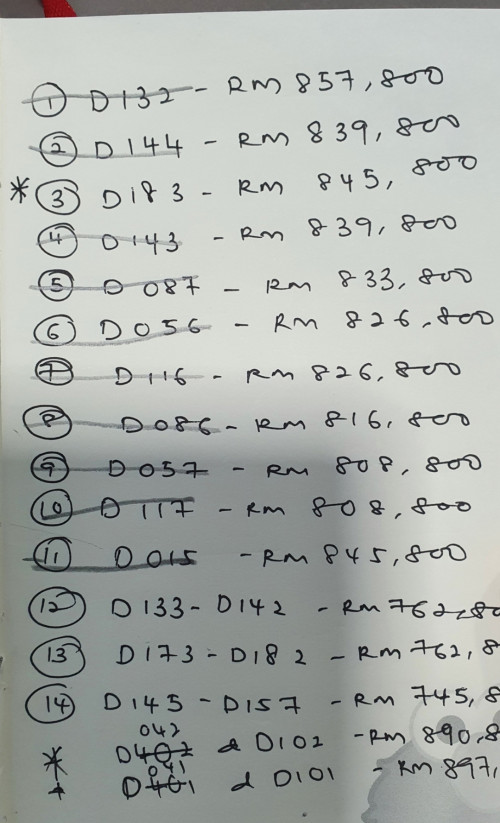 ① D132 - RM 857,800
② D144 - RM 839,800
* ③ D183 - RM 845,800
④ D143 - RM 839,800
⑤ D087 - RM 833,800
⑥ D056 - RM 826,800
⑦ D116 - RM 826,800
⑧ D086 - RM 816,800
⑨ D057 - RM 808,800
⑩ D117 - RM 808,800
⑪ D015 - RM 845,800
⑫ D133 - D142 - RM 762,80
⑬ D173 - D182 - RM 762,8
⑭ D145 - D157 - RM 745,8
042
* D402 & D102 - RM 890,8
041
* D401 & D101 - RM 897,